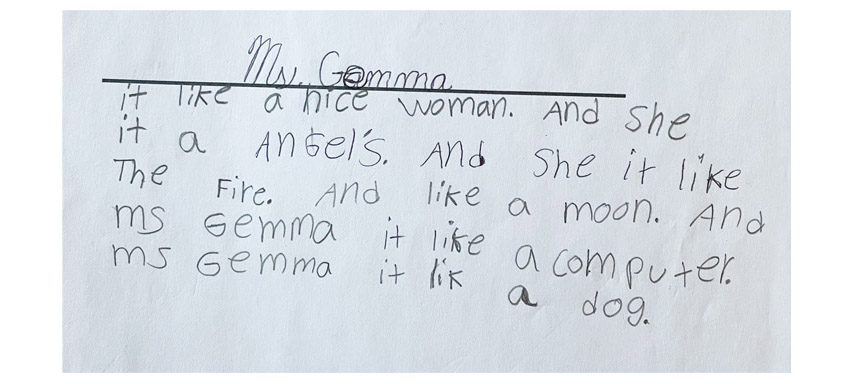 Ms. Gemma
it like a nice woman. And she
it a AnGel's. And She it like
The Fire. And like a moon. And
ms Gemma it like a computer.
ms Gemma it lik a dog.